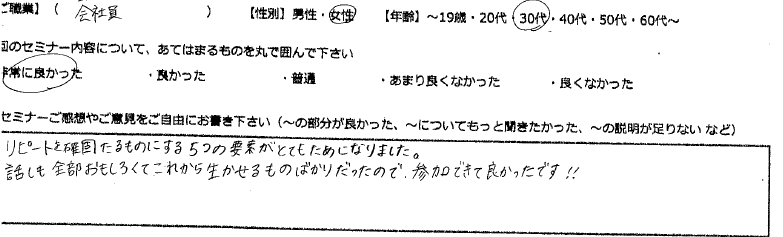 ご職業】（ 会社員 ） 【性別】男性・女性 【年齢】～19歳・20代・30代・40代・50代・60代～
回のセミナー内容について、あてはまるものを丸で囲んで下さい
非常に良かった ・良かった ・普通 ・あまり良くなかった ・良くなかった
セミナーご感想やご意見をご自由にお書き下さい（～の部分が良かった、～についてもっと聞きたかった、～の説明が足りない など）
リピートを確固たるものにする5つの要素がとてもためになりました。
話しも全部おもしろくてこれから生かせるものばかりだったので、参加できて良かったです!!